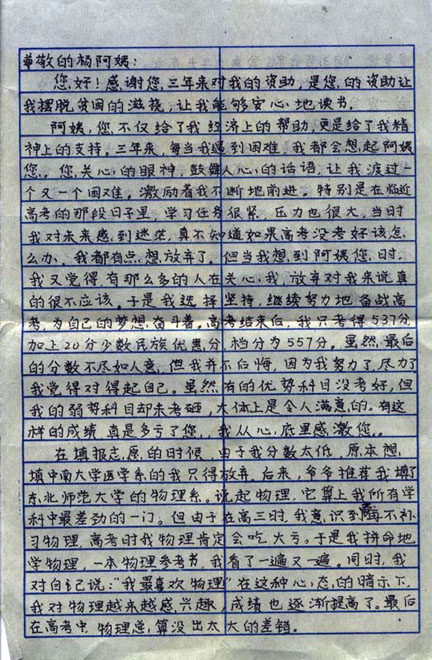 尊敬的杨阿姨:
您好!感谢您,三年来对我的资助,是您的资助让
我摆脱贫困的滋扰,让我能够安心地读书。
阿姨,您不仅给了我经济上的帮助,更是给了我精
神上的支持。三年来,每当我遇到困难,我都会想起阿姨
您。您,关心的眼神,鼓舞人心的话语,让我渡过一
个又一个困难。激励着我不断地前进。特别是在临近
高考的那段日子里,学习任务很紧,压力也很大,当时
我对未来感到迷茫,真不知道如果高考没考好该怎
么办,我都有点想放弃了。但当我想到阿姨您,时,
我又觉得有那么多的人在关心我,放弃对我来说真
的很不应该。于是我选择坚持,继续努力地备战高
考,为自己的梦想奋斗着。高考结束后,我只考得537分,
加上20分少数民族优惠分,档分为557分。虽然,最后
的分数不尽如人意,但我并不后悔,因为我努力了,尽力了
我觉得对得起自己。虽然有的优势科目没考好,但
我的弱势科目却未考砸,大体上是令人满意的。有这
样的成绩真是多亏了您,我从心底里感激您。
在填报志愿的时候,由于我分数太低,原本想
填中南大学医学系的我只得放弃,后来,爷爷推荐我填了
东北师范大学的物理系。说起物理,它算上我所有学
科中最差劲的一门。但由于在高三时,我意识到再不补
习物理,高考时我物理肯定会吃大亏。于是我拼命地
学物理,一本物理参考书,我看了一遍又一遍。同时,我
对自己说:“我最喜欢物理”在这种心态的暗示下,
我对物理越来越感兴趣,成绩也逐渐提高了。最后
在高考中,物理总算没出太大的差错。